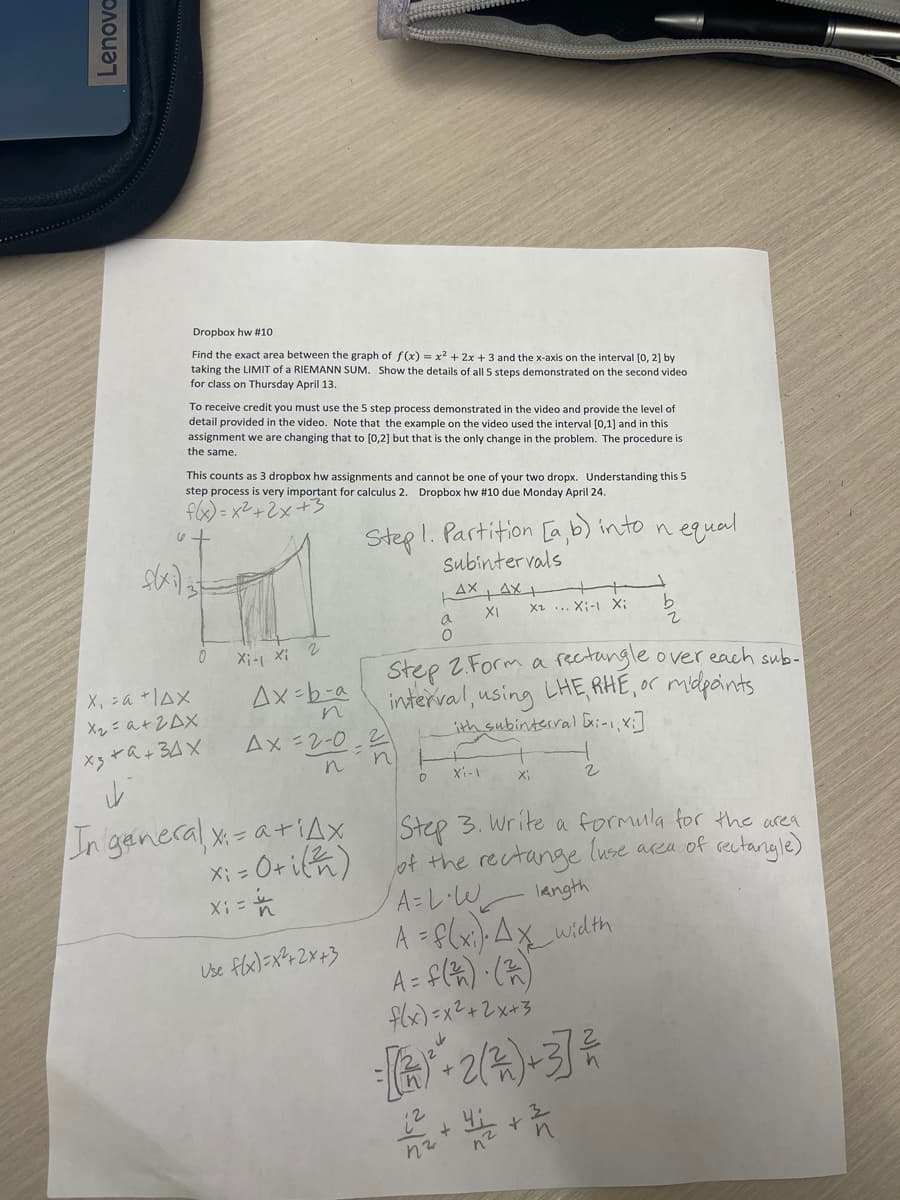 Lenovo
Dropbox hw #10
Find the exact area between the graph of f(x) = x² + 2x + 3 and the x-axis on the interval [0, 2] by
taking the LIMIT of a RIEMANN SUM. Show the details of all 5 steps demonstrated on the second video
for class on Thursday April 13.
To receive credit you must use the 5 step process demonstrated in the video and provide the level of
detail provided in the video. Note that the example on the video used the interval [0,1] and in this
assignment we are changing that to [0,2] but that is the only change in the problem. The procedure is
the same.
This counts as 3 dropbox hw assignments and cannot be one of your two dropx. Understanding this 5
step process is very important for calculus 2. Dropbox hw #10 due Monday April 24.
f(x) = x²+2x+3
6
f(xi) 3
0 xi-1 xi 2
Step 1. Partition [a,b) into n equal
subintervals
Δx Δx
a x1 x2 ... xi-1 xi b
0 2
x1 = a +1Δx
x2 = a+2Δx
x3 + a+3Δx
↓
Δx = b-a/n
Δx = 2-0/n = 2/n
In general, xi = a+iΔx
xi = 0+i(2/n)
xi = i/n
Use f(x)=x²+2x+3
Step 2. Form a rectangle over each sub-
interval, using LHE, RHE, or midpoints
ith subinterval [xi-1, xi]
0 xi-1 xi 2
Step 3. Write a formula for the area
of the rectange (use area of rectangle)
A=L·W length
A = f(xi)·Δx width
A = f(2/n)·(2/n)
f(x)=x²+2x+3
↓
=[(2/n)²+2(2/n)+3] 2/n
i²/n² + 4i/n² + 3/n